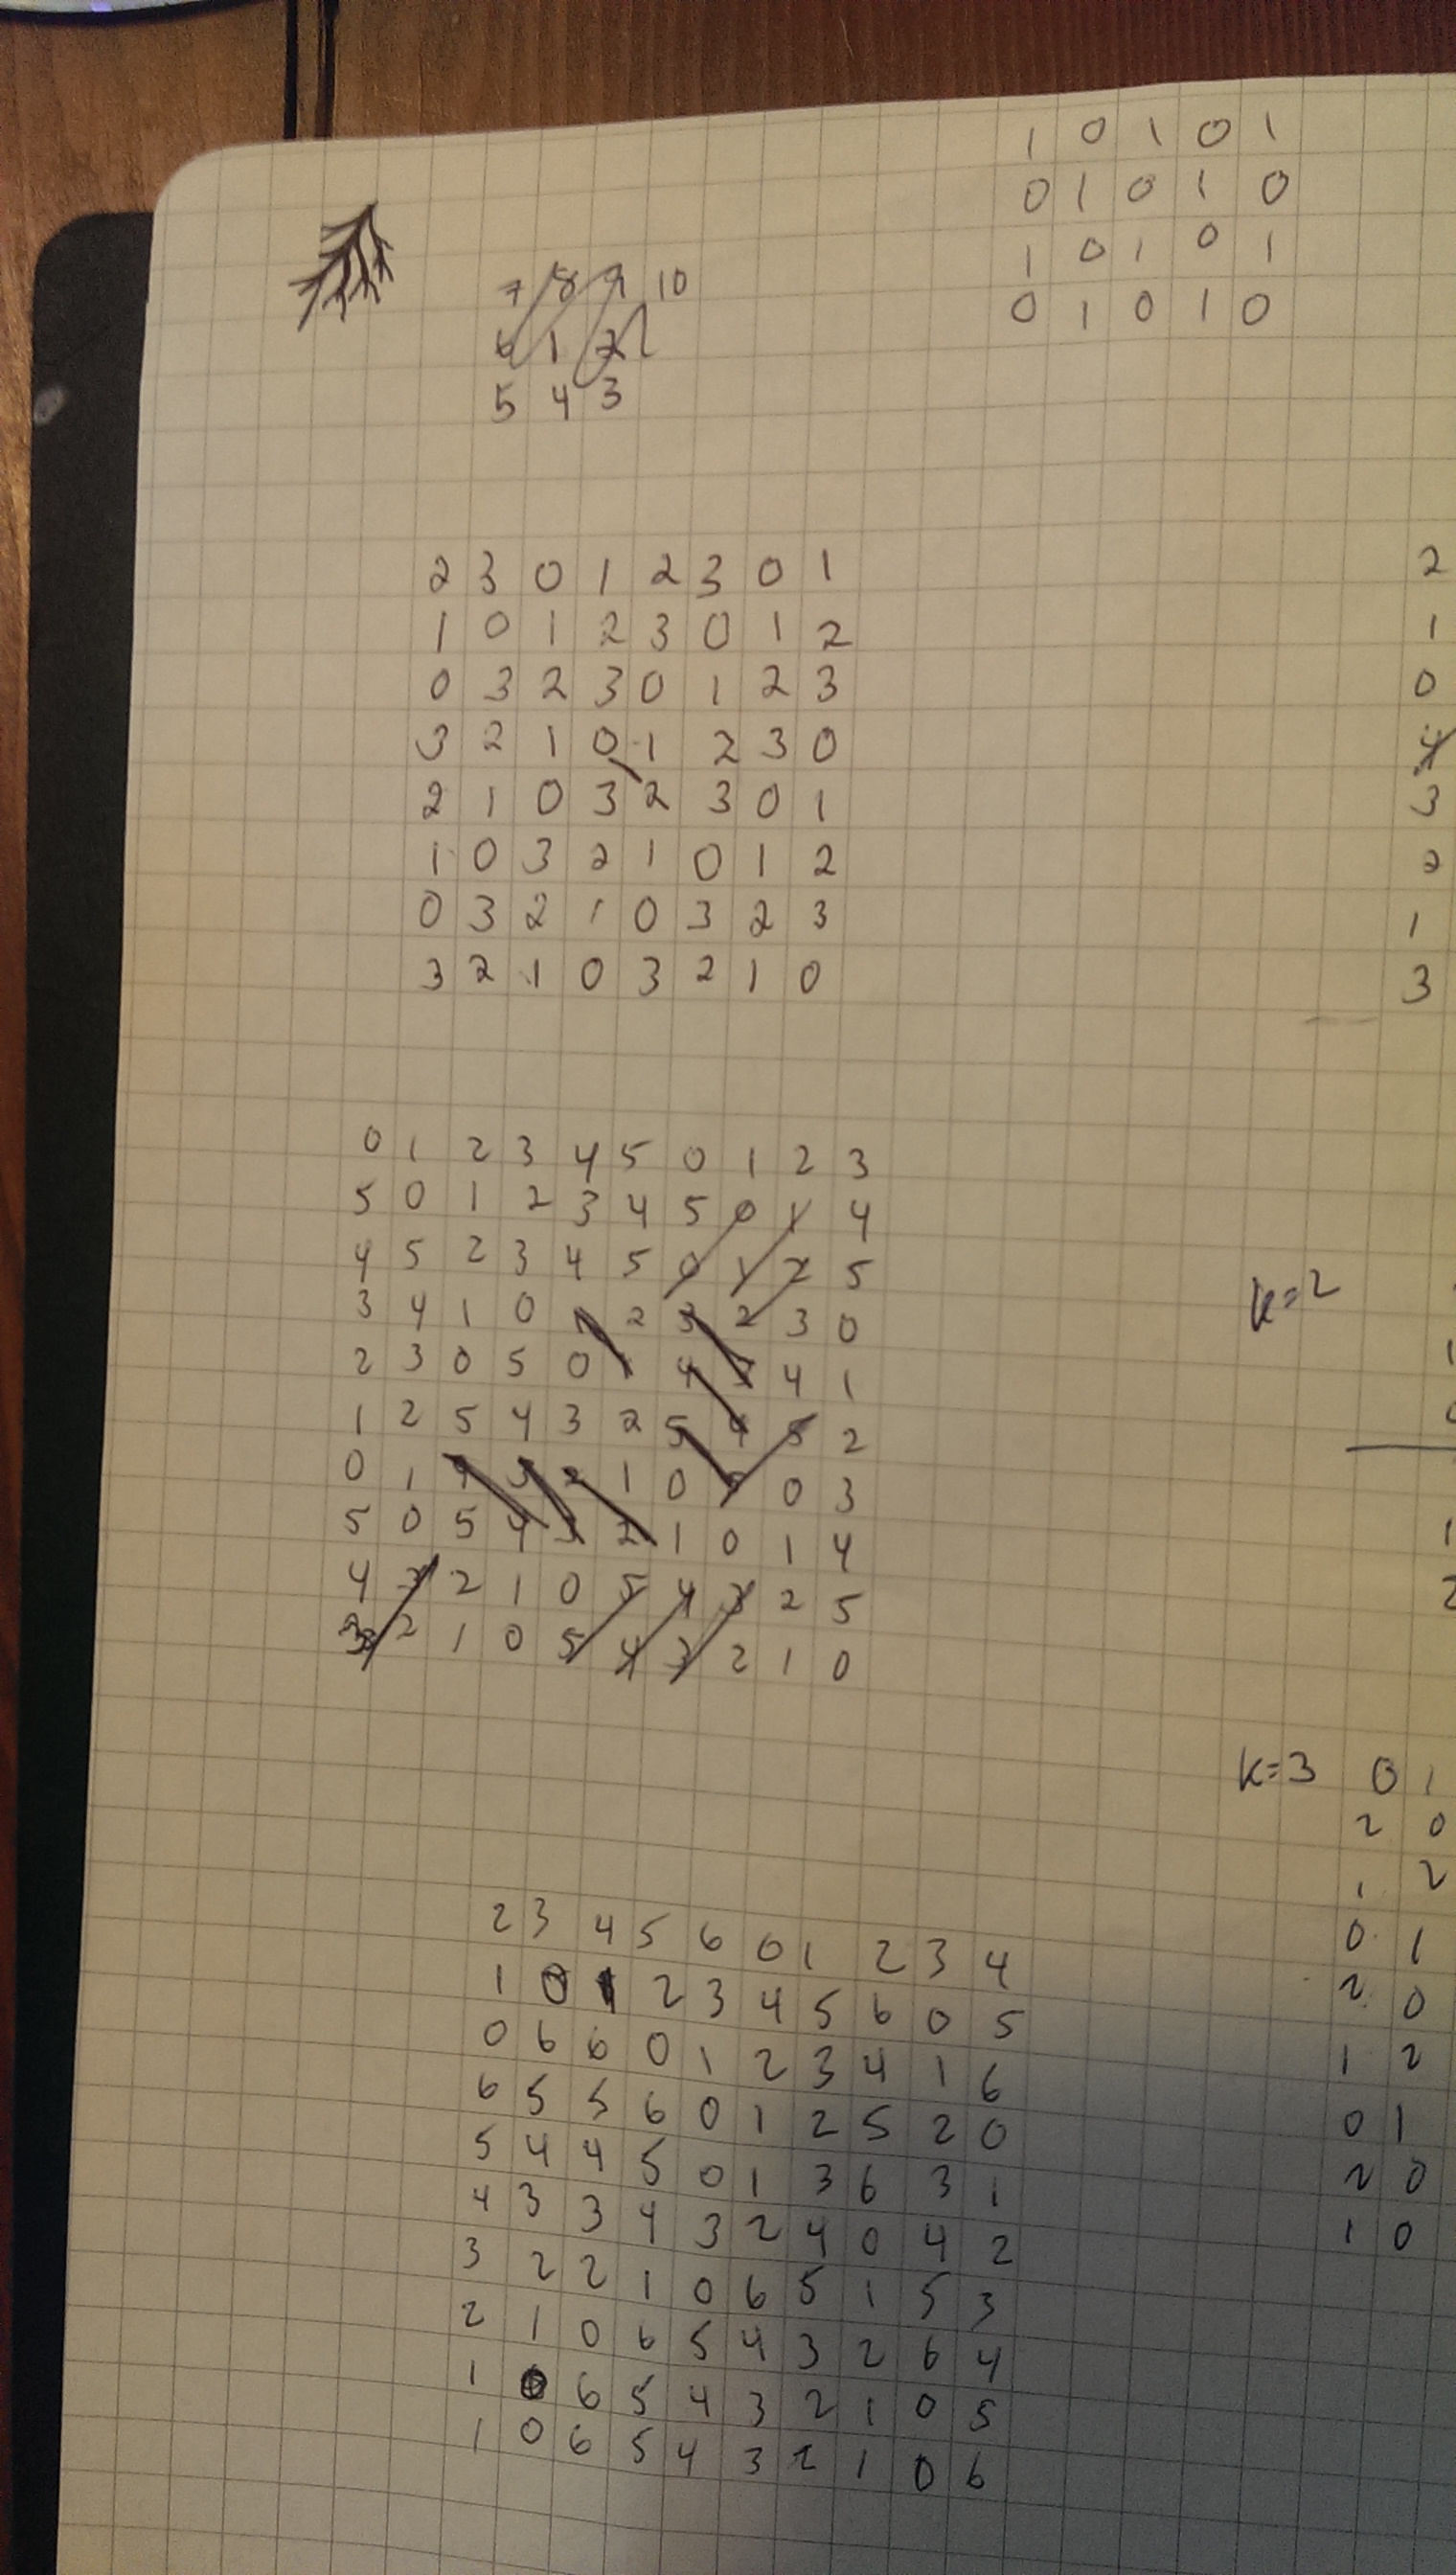 1 0 1 0 1
0 1 0 1 0
1 0 1 0 1
0 1 0 1 0
7 8 9 10
6 1 2
5 4 3
2 3 0 1 2 3 0 1
1 0 1 2 3 0 1 2
0 3 2 3 0 1 2 3
3 2 1 0 1 2 3 0
2 1 0 3 2 3 0 1
1 0 3 2 1 0 1 2
0 3 2 1 0 3 2 3
3 2 1 0 3 2 1 0
2
1
0
3
2
1
3
0 1 2 3 4 5 0 1 2 3
5 0 1 2 3 4 5 0 1 4
4 5 2 3 4 5 0 1 2 5
3 4 1 0 1 2 3 2 3 0
2 3 0 5 0 1 4 3 4 1
1 2 5 4 3 2 5 4 5 2
0 1 4 3 2 1 0 5 0 3
5 0 5 4 3 2 1 0 1 4
4 3 2 1 0 5 4 3 2 5
3 2 1 0 5 4 3 2 1 0
k=2
1
1
2
k=3 0 1
2 0
1 2
0 1
2 0
1 2
0 1
2 0
1 0
2 3 4 5 6 0 1 2 3 4
1 0 1 2 3 4 5 6 0 5
0 6 6 0 1 2 3 4 1 6
6 5 5 6 0 1 2 5 2 0
5 4 4 5 0 1 3 6 3 1
4 3 3 4 3 2 4 0 4 2
3 2 2 1 0 6 5 1 5 3
2 1 0 6 5 4 3 2 6 4
1 0 6 5 4 3 2 1 0 5
1 0 6 5 4 3 2 1 0 6